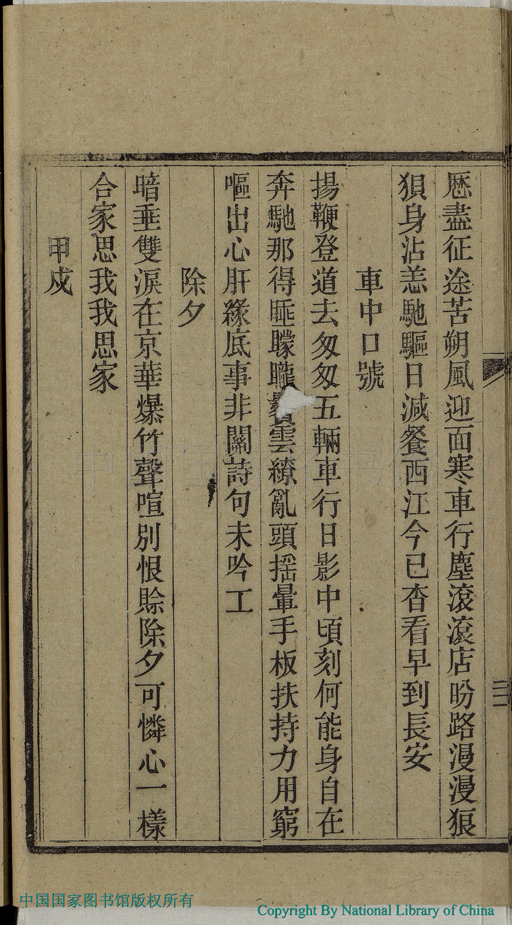 歷盡征途苦朔風迎面寒車行塵滾滾店盼路漫漫狼
狽身沾恙馳驅日減餐西江今已杳看早到長安
車中口號
揚鞭登道去匆匆五輛車行日影中頃刻何能身自在
奔馳那得睡矇矓鬢雲繚亂頭搖暈手板扶持力用窮
嘔出心肝緣底事非關詩句未吟工
除夕
暗垂雙淚在京華爆竹聲喧別恨賒除夕可憐心一樣
合家思我我思家
甲戍
三
中国国家图书馆版权所有
Copyright By National Library of China